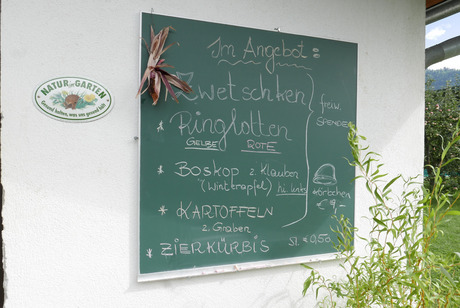 NATUR im GARTEN
Gesund halten, was uns gesund hält
Im Angebot:
* Zwetschken
* Ringlotten
GELBE ROTE
* BOSKOP z. Klauben
(Winterapfel) hi. links
* KARTOFFELN
z. Graben
* ZIERKÜRBIS St. € 0,50
freiw.
SPENDE
Körbchen